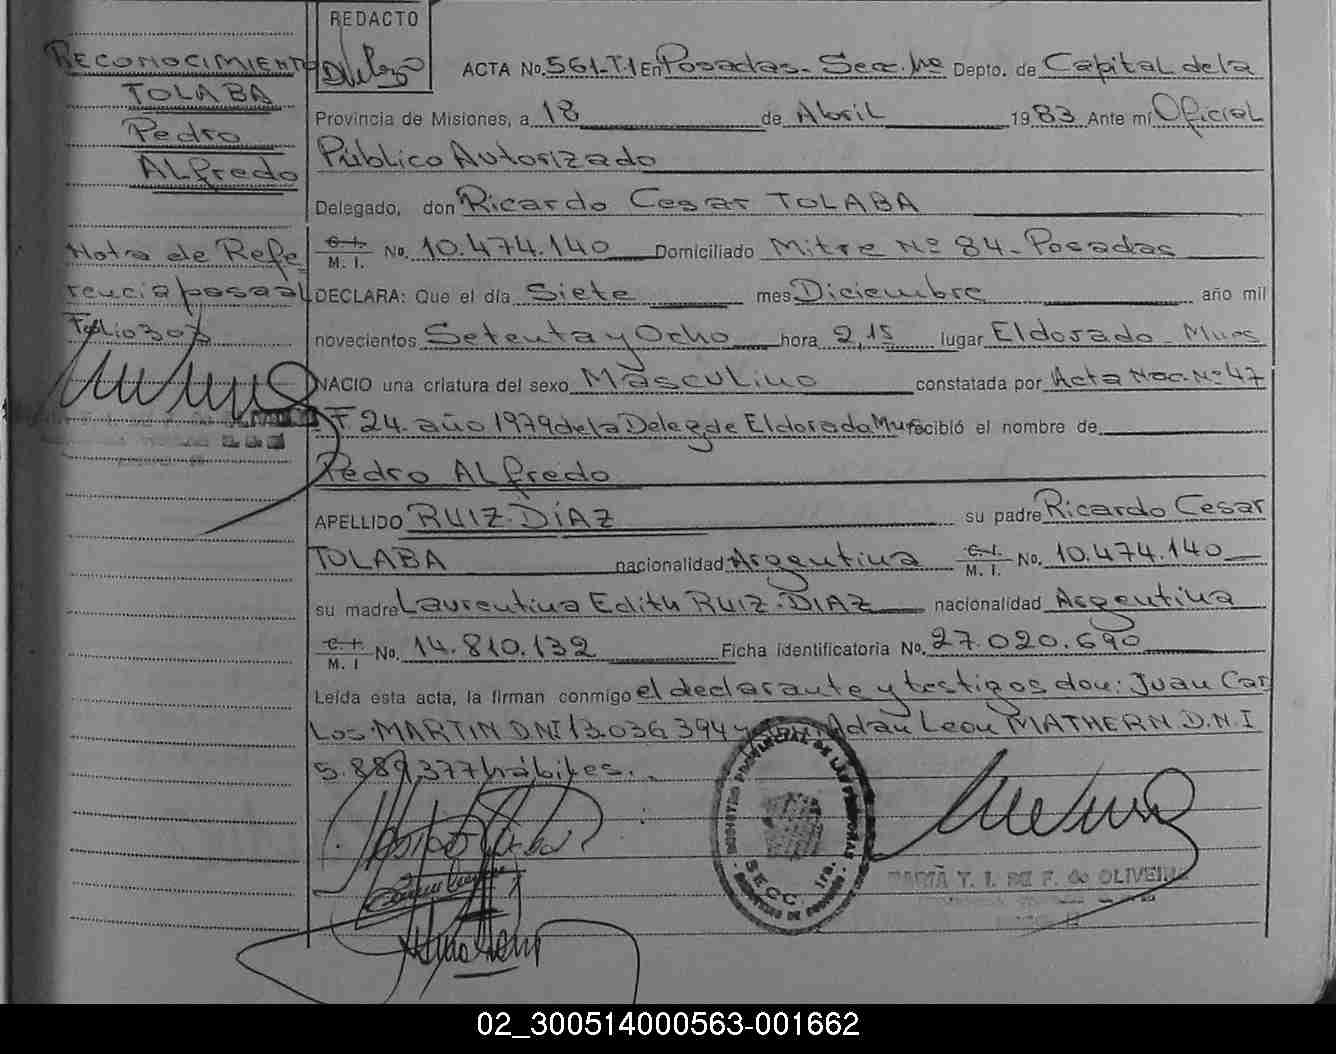 REDACTO
RECONOCIMIENTO
TOLABA
Pedro
ALfredo
Nota de Refe
rencia posaal
Folio 307
ACTA No. 561-T.I En Posadas- Secc. 1ro Depto. de Capital de la
Provincia de Misiones, a 18 de Abril 1983 Ante mí Oficial
Público Autorizado
Delegado, don Ricardo Cesar TOLABA
C. I. M. I. No. 10.474.140 Domiciliado Mitre Nº 84- Posadas
DECLARA: Que el día Siete mes Diciembre año mil
novecientos Setenta y Ocho hora 2,15 lugar Eldorado- Mnes
NACIO una criatura del sexo Masculino constatada por Acta Nac. Nº 47
F 24 año 1979 de la Deleg de Eldorado Mnes recibió el nombre de
Pedro ALfredo
APELLIDO RUIZ-DÍAZ su padre Ricardo Cesar
TOLABA nacionalidad Argentina C. I. M. I. No. 10.474.140
su madre Laurentina Edith RUIZ-DIAZ nacionalidad Argentina
C. I. M. I No. 14.810.132 Ficha identificatoria No. 27.020.690
Leída esta acta, la firman conmigo el declarante y testigos don: Juan Car
Los MARTIN DNI 13.036.394 y Adán Leon MATHERN D.N.I
5.889.377 hábiles.
REGISTRO PROVINCIAL DE LAS PERSONAS
SECC. 1ra.
MARÍA T. I. DE F. de OLIVEIRA
02_300514000563-001662